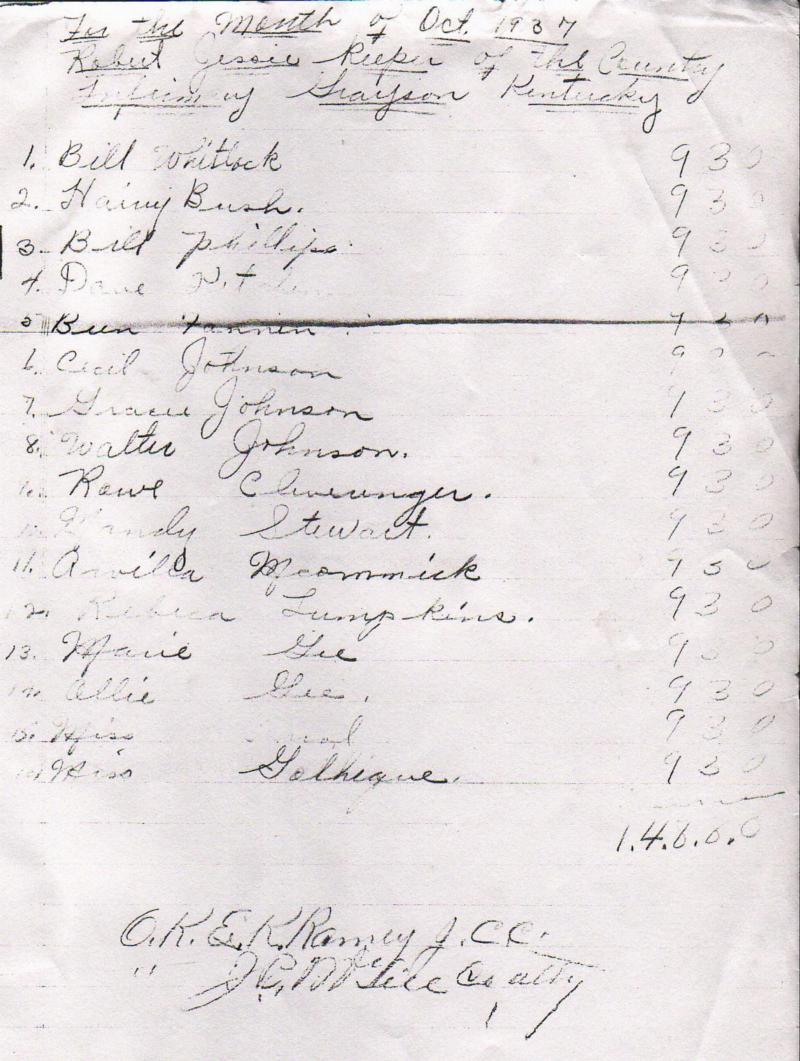 For the Month of Oct. 1937
Robert Jessie Keeper of the County
Infirmary Grayson Kentucky
1. Bill Whitlock 9 3 0
2. Hainy Bush. 9 3 0
3. Bill Phillips 9 3 0
4. Dave 9
5 Ben 9
6. Cecil Johnson 9
7. Gracie Johnson 9 3 0
8. Walter Johnson. 9 3 0
Rowe 9 3 0
Stewart. 9 3 0
11. Arvilla Mcommick 9 3 0
12. Rebeca Lumpkins. 9 3 0
13. Marie Gee 9 3 0
Ollie Gee. 9 3 0
15. Miss 9 3 0
Miss 9 3 0
1.4.
O.K. E.K. Ramey J.C.C.
" Co atty